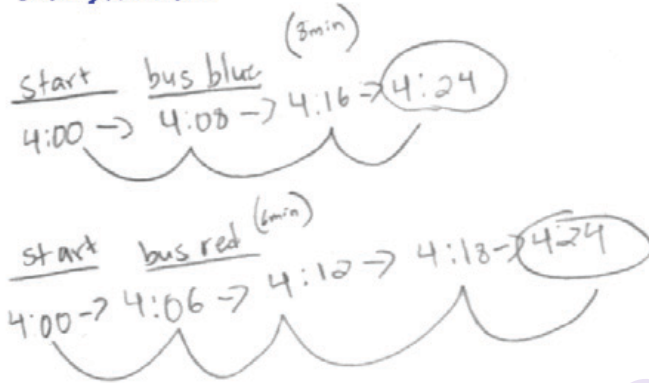 (8min)
start bus blue
4:00 -> 4:08 -> 4:16 -> 4:24
start bus red (6min)
4:00 -> 4:06 -> 4:12 -> 4:18 -> 4:24